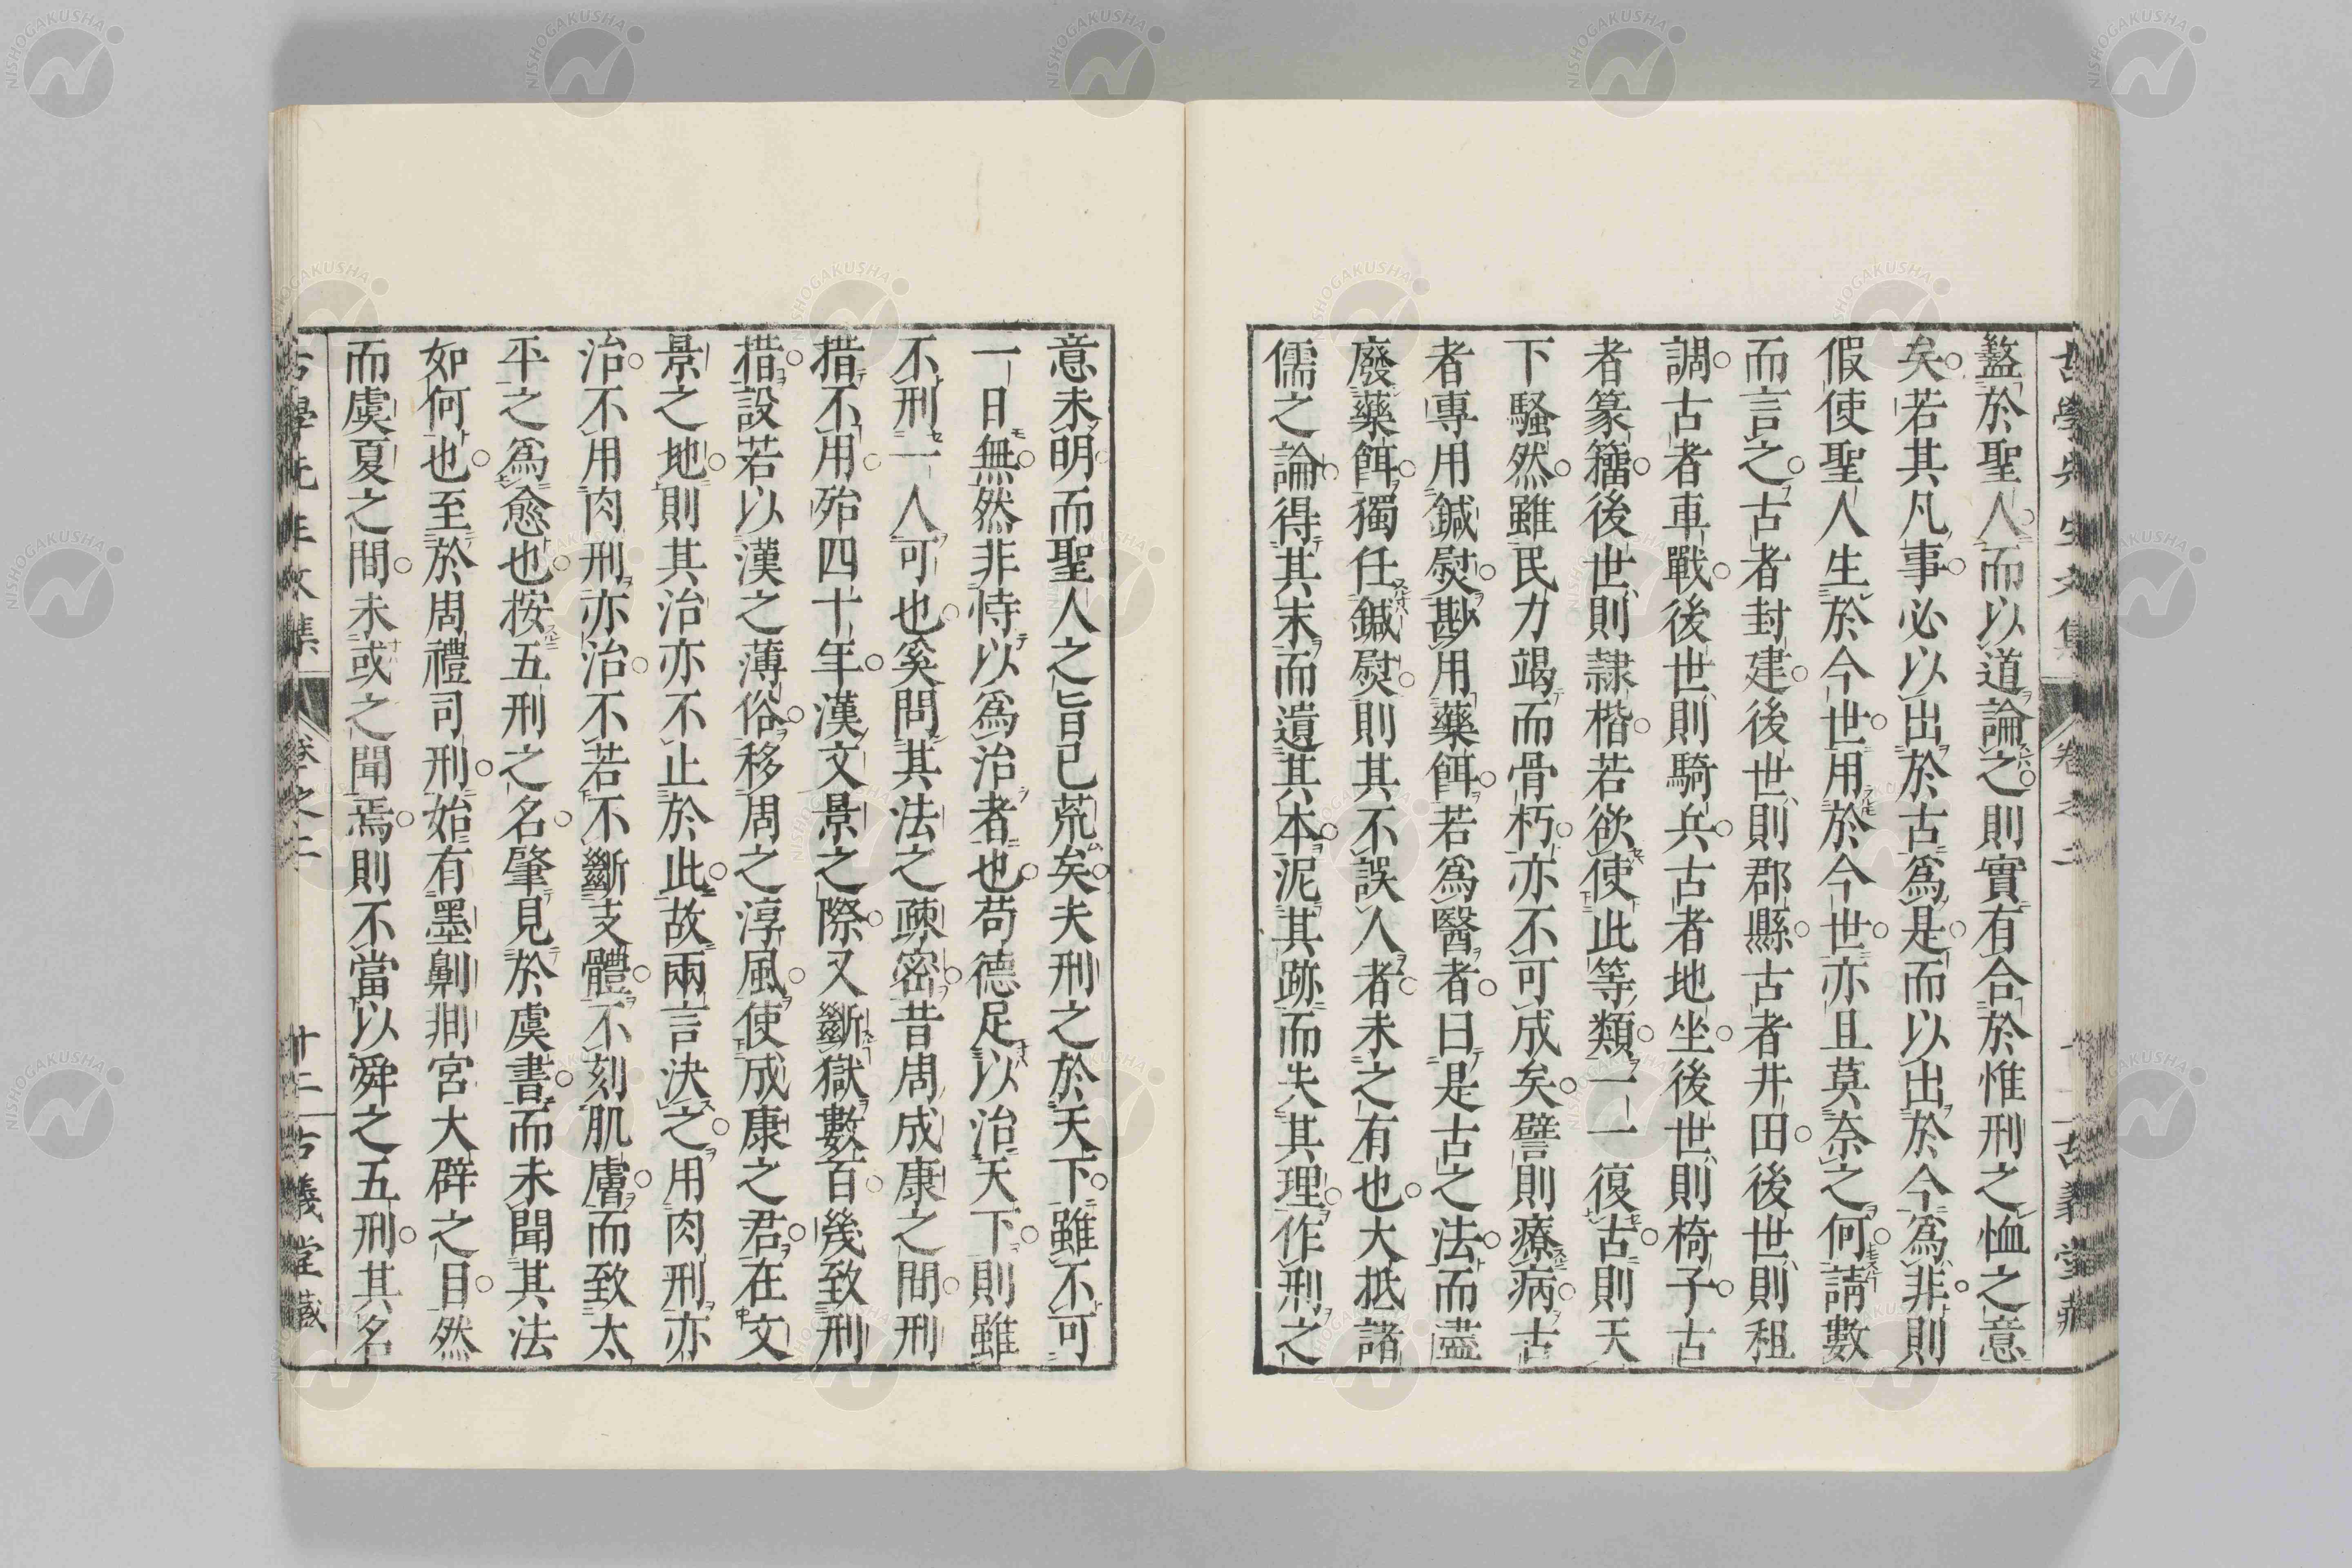 盭於聖人而以道論之則實有合於惟刑之恤之意
矣若其凡事必以出於古爲是而以出於今爲非則
假使聖人生於今世用於今世亦且莫奈之何請數
而言之古者封建後世則郡縣古者井田後世則租
調古者車戰後世則騎兵古者地坐後世則椅子古
者篆籀後世則隷楷若欲使此等類一一復古則天
下騷然雖民力竭而骨朽亦不可成矣譬則療病古
者專用鍼熨尠用藥餌若爲醫者曰是古之法而盡
廢藥餌獨任鍼熨則其不誤人者未之有也大抵諸
儒之論得其末而遺其本泥其跡而失其理作刑之
意未明而聖人之旨已荒矣夫刑之於天下雖不可
一日無然非恃以爲治者也苟德足以治天下則雖
不刑一人可也奚問其法之疎密昔周成康之間刑
措不用殆四十年漢文景之際又斷獄數百幾致刑
措設若以漢之薄俗移周之淳風使成康之君在文
景之地則其治亦不止於此故兩言決之用肉刑亦
治不用肉刑亦治不若不斷支體不刻肌膚而致太
平之爲愈也按五刑之名肇見於虞書而未聞其法
如何也至於周禮司刑始有墨劓剕宮大辟之目然
而虞夏之間未或之聞焉則不當以舜之五刑其名
古學先生文集 卷之二 廿二 古義堂藏